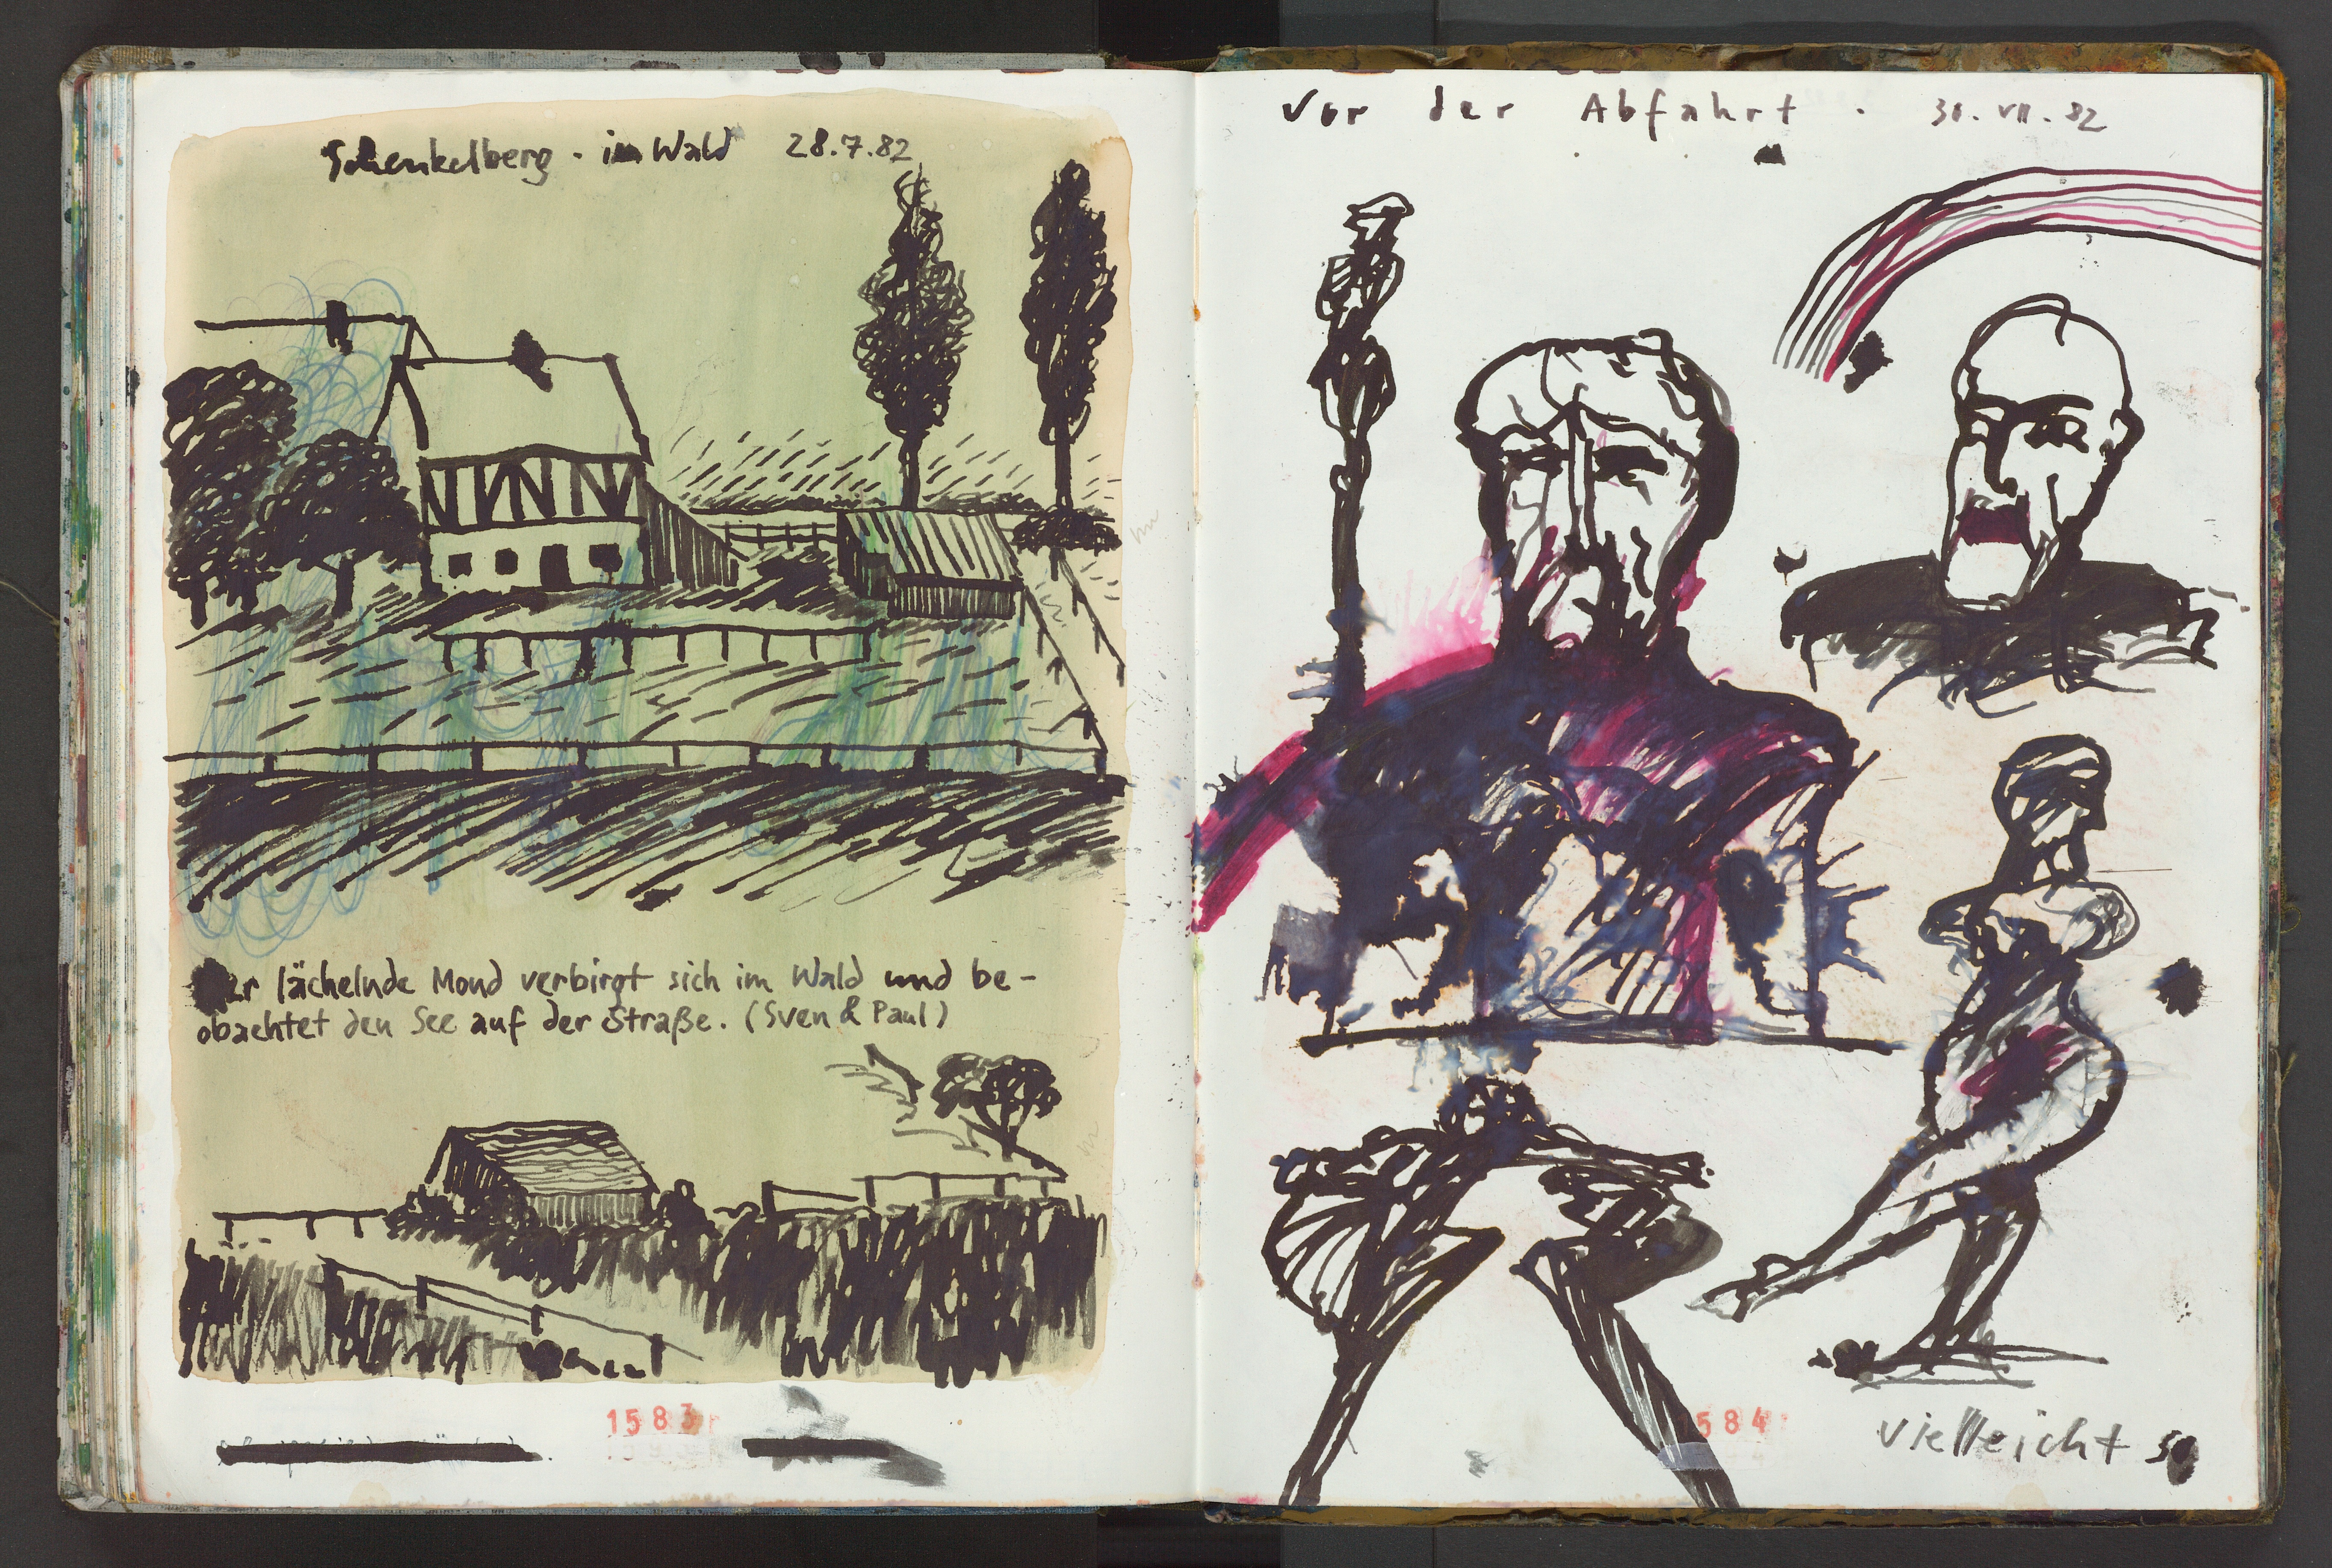 Schenkelberg . im Wald 28.7.82
Der lächelnde Mond verbirgt sich im Wald und be-
obachtet den See auf der Straße. (Sven & Paul)
1583
Vor der Abfahrt . 30. VII. 82
584
vielleicht so